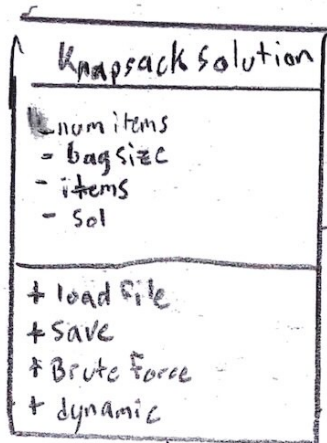 Knapsack Solution
- num items
- bag size
- items
- sol
+ load file
+ save
+ Brute Force
+ dynamic